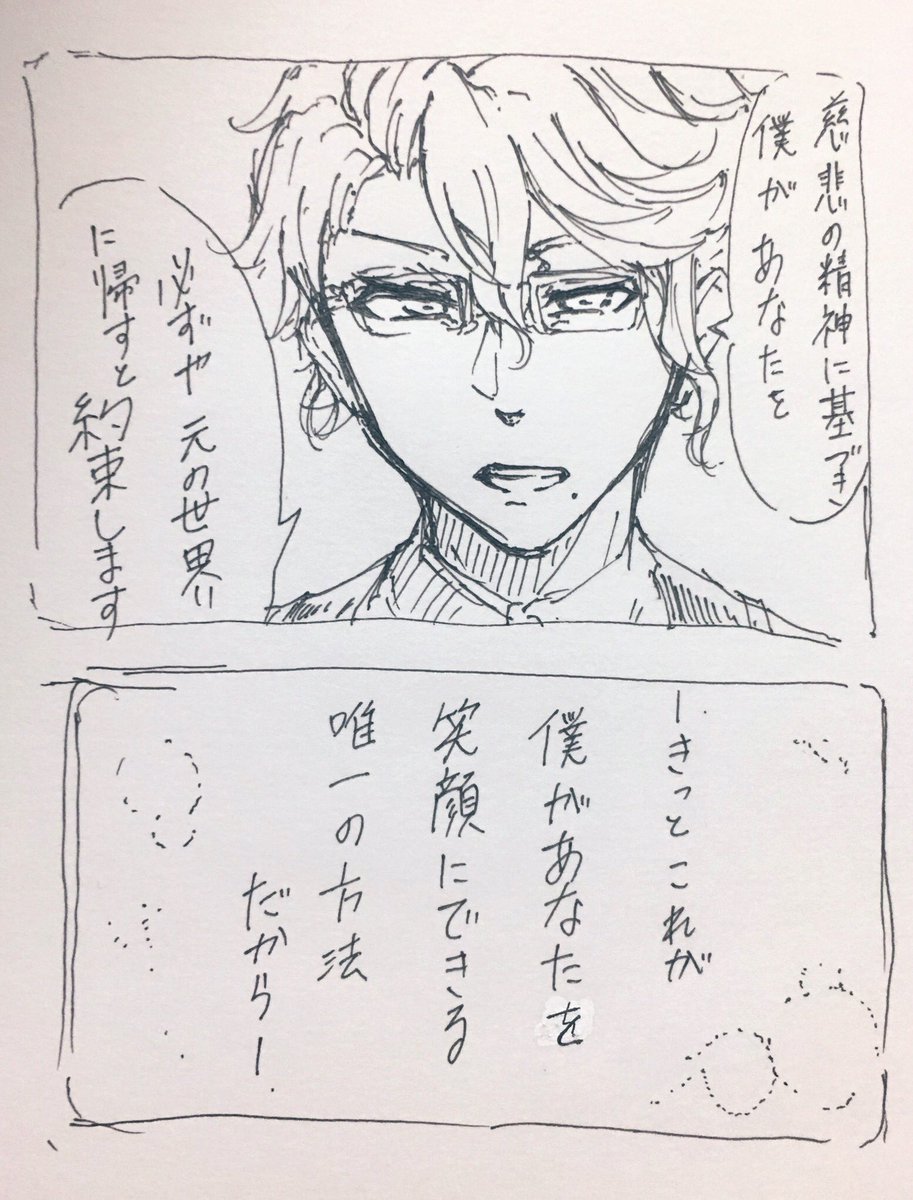 慈悲の精神に基づき
僕が あなたを
必ずや 元の世界
に帰すと約束します
―きっとこれが
僕があなたを
笑顔にできる
唯一の方法
だから―